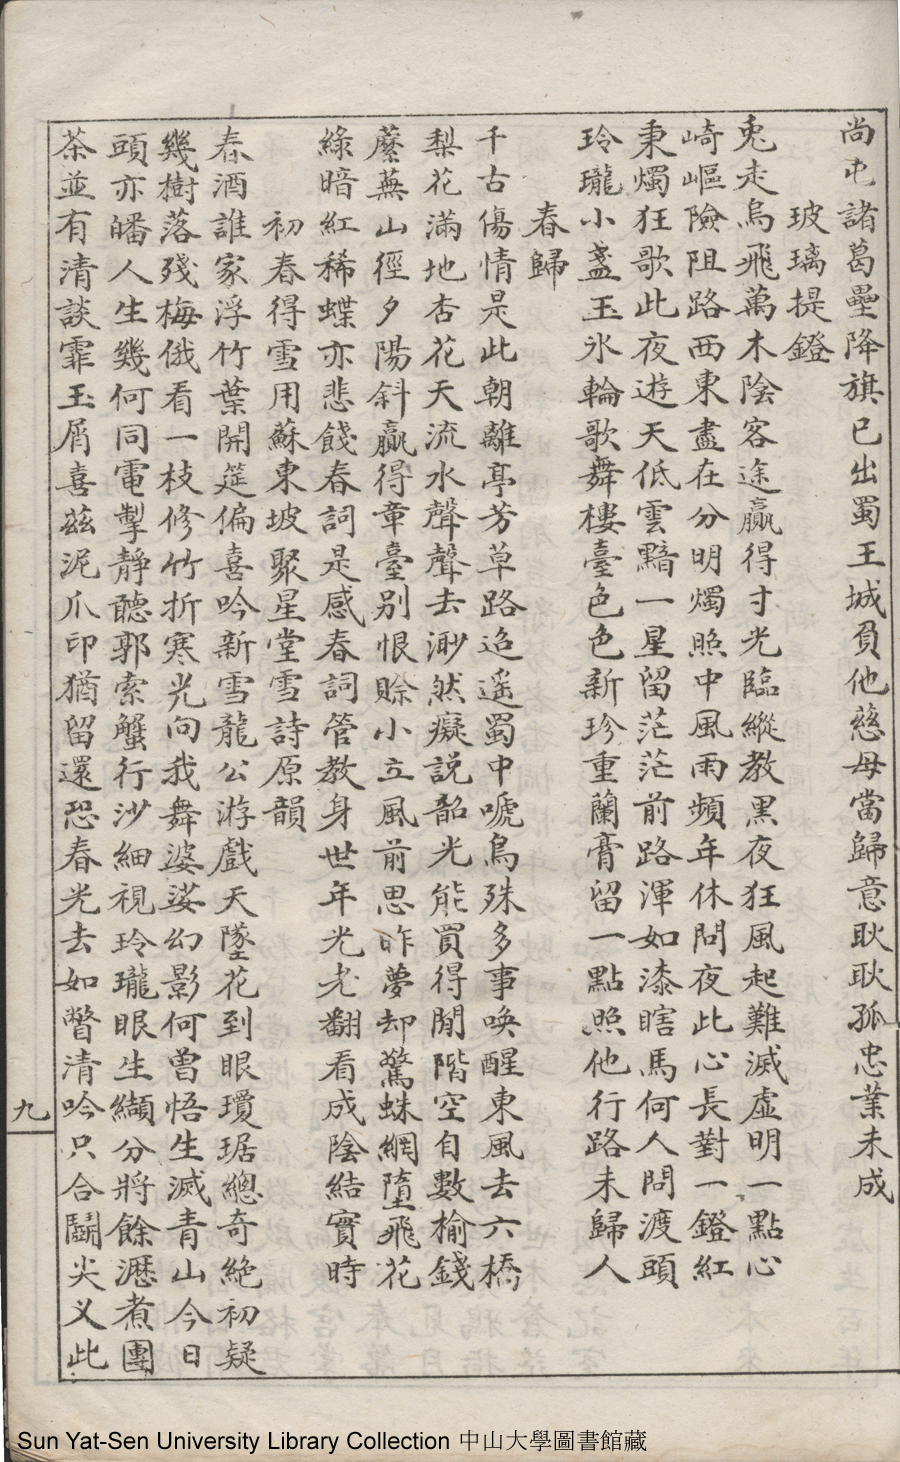 尚屯諸葛壘降旗已出蜀王城負他慈母當歸意耿耿孤忠業未成
玻璃提鐙
兎走烏飛萬木陰客途贏得寸光臨縱教黑夜狂風起難滅虛明一點心
崎嶇險阻路西東盡在分明燭照中風雨頻年休問夜此心長對一鐙紅
秉燭狂歌此夜遊天低雲黯一星留茫茫前路渾如漆瞎馬何人問渡頭
玲瓏小盞玉氷輪歌舞樓臺色色新珍重蘭膏留一點照他行路未歸人
春歸
千古傷情是此朝離亭芳草路迢遥蜀中嗁鳥殊多事喚醒東風去六橋
梨花滿地杏花天流水聲聲去渺然癡説韶光能買得閒階空自數榆錢
蘼蕪山徑夕陽斜贏得章臺別恨賒小立風前思昨夢却驚蛛網墮飛花
綠暗紅稀蝶亦悲餞春詞是感春詞管教身世年光老翻看成陰結實時
初春得雪用蘇東坡聚星堂雪詩原韻
春酒誰家浮竹葉開筵偏喜吟新雪龍公游戲天墜花到眼瓊琚總奇絶初疑
幾樹落殘梅俄看一枝修竹折寒光向我舞婆娑幻影何曾悟生滅青山今日
頭亦皤人生幾何同電掣靜聽郭索蟹行沙細視玲瓏眼生纈分將餘瀝煮團
茶並有清談霏玉屑喜茲泥爪印猶留還恐春光去如瞥清吟只合鬭尖义此
九
Sun Yat-Sen University Library Collection 中山大學圖書館藏